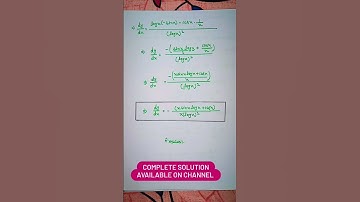 ⇒ dy/dx = logx(-sinx) - cosx · 1/x / (logx)²
⇒ dy/dx = -(sinx logx + cosx/x) / (logx)²
⇒ dy/dx = -(x sinx logx + cosx)/x / (logx)²
⇒ dy/dx = -(x sinx logx + cosx) / x(logx)²
COMPLETE SOLUTION
AVAILABLE ON CHANNEL